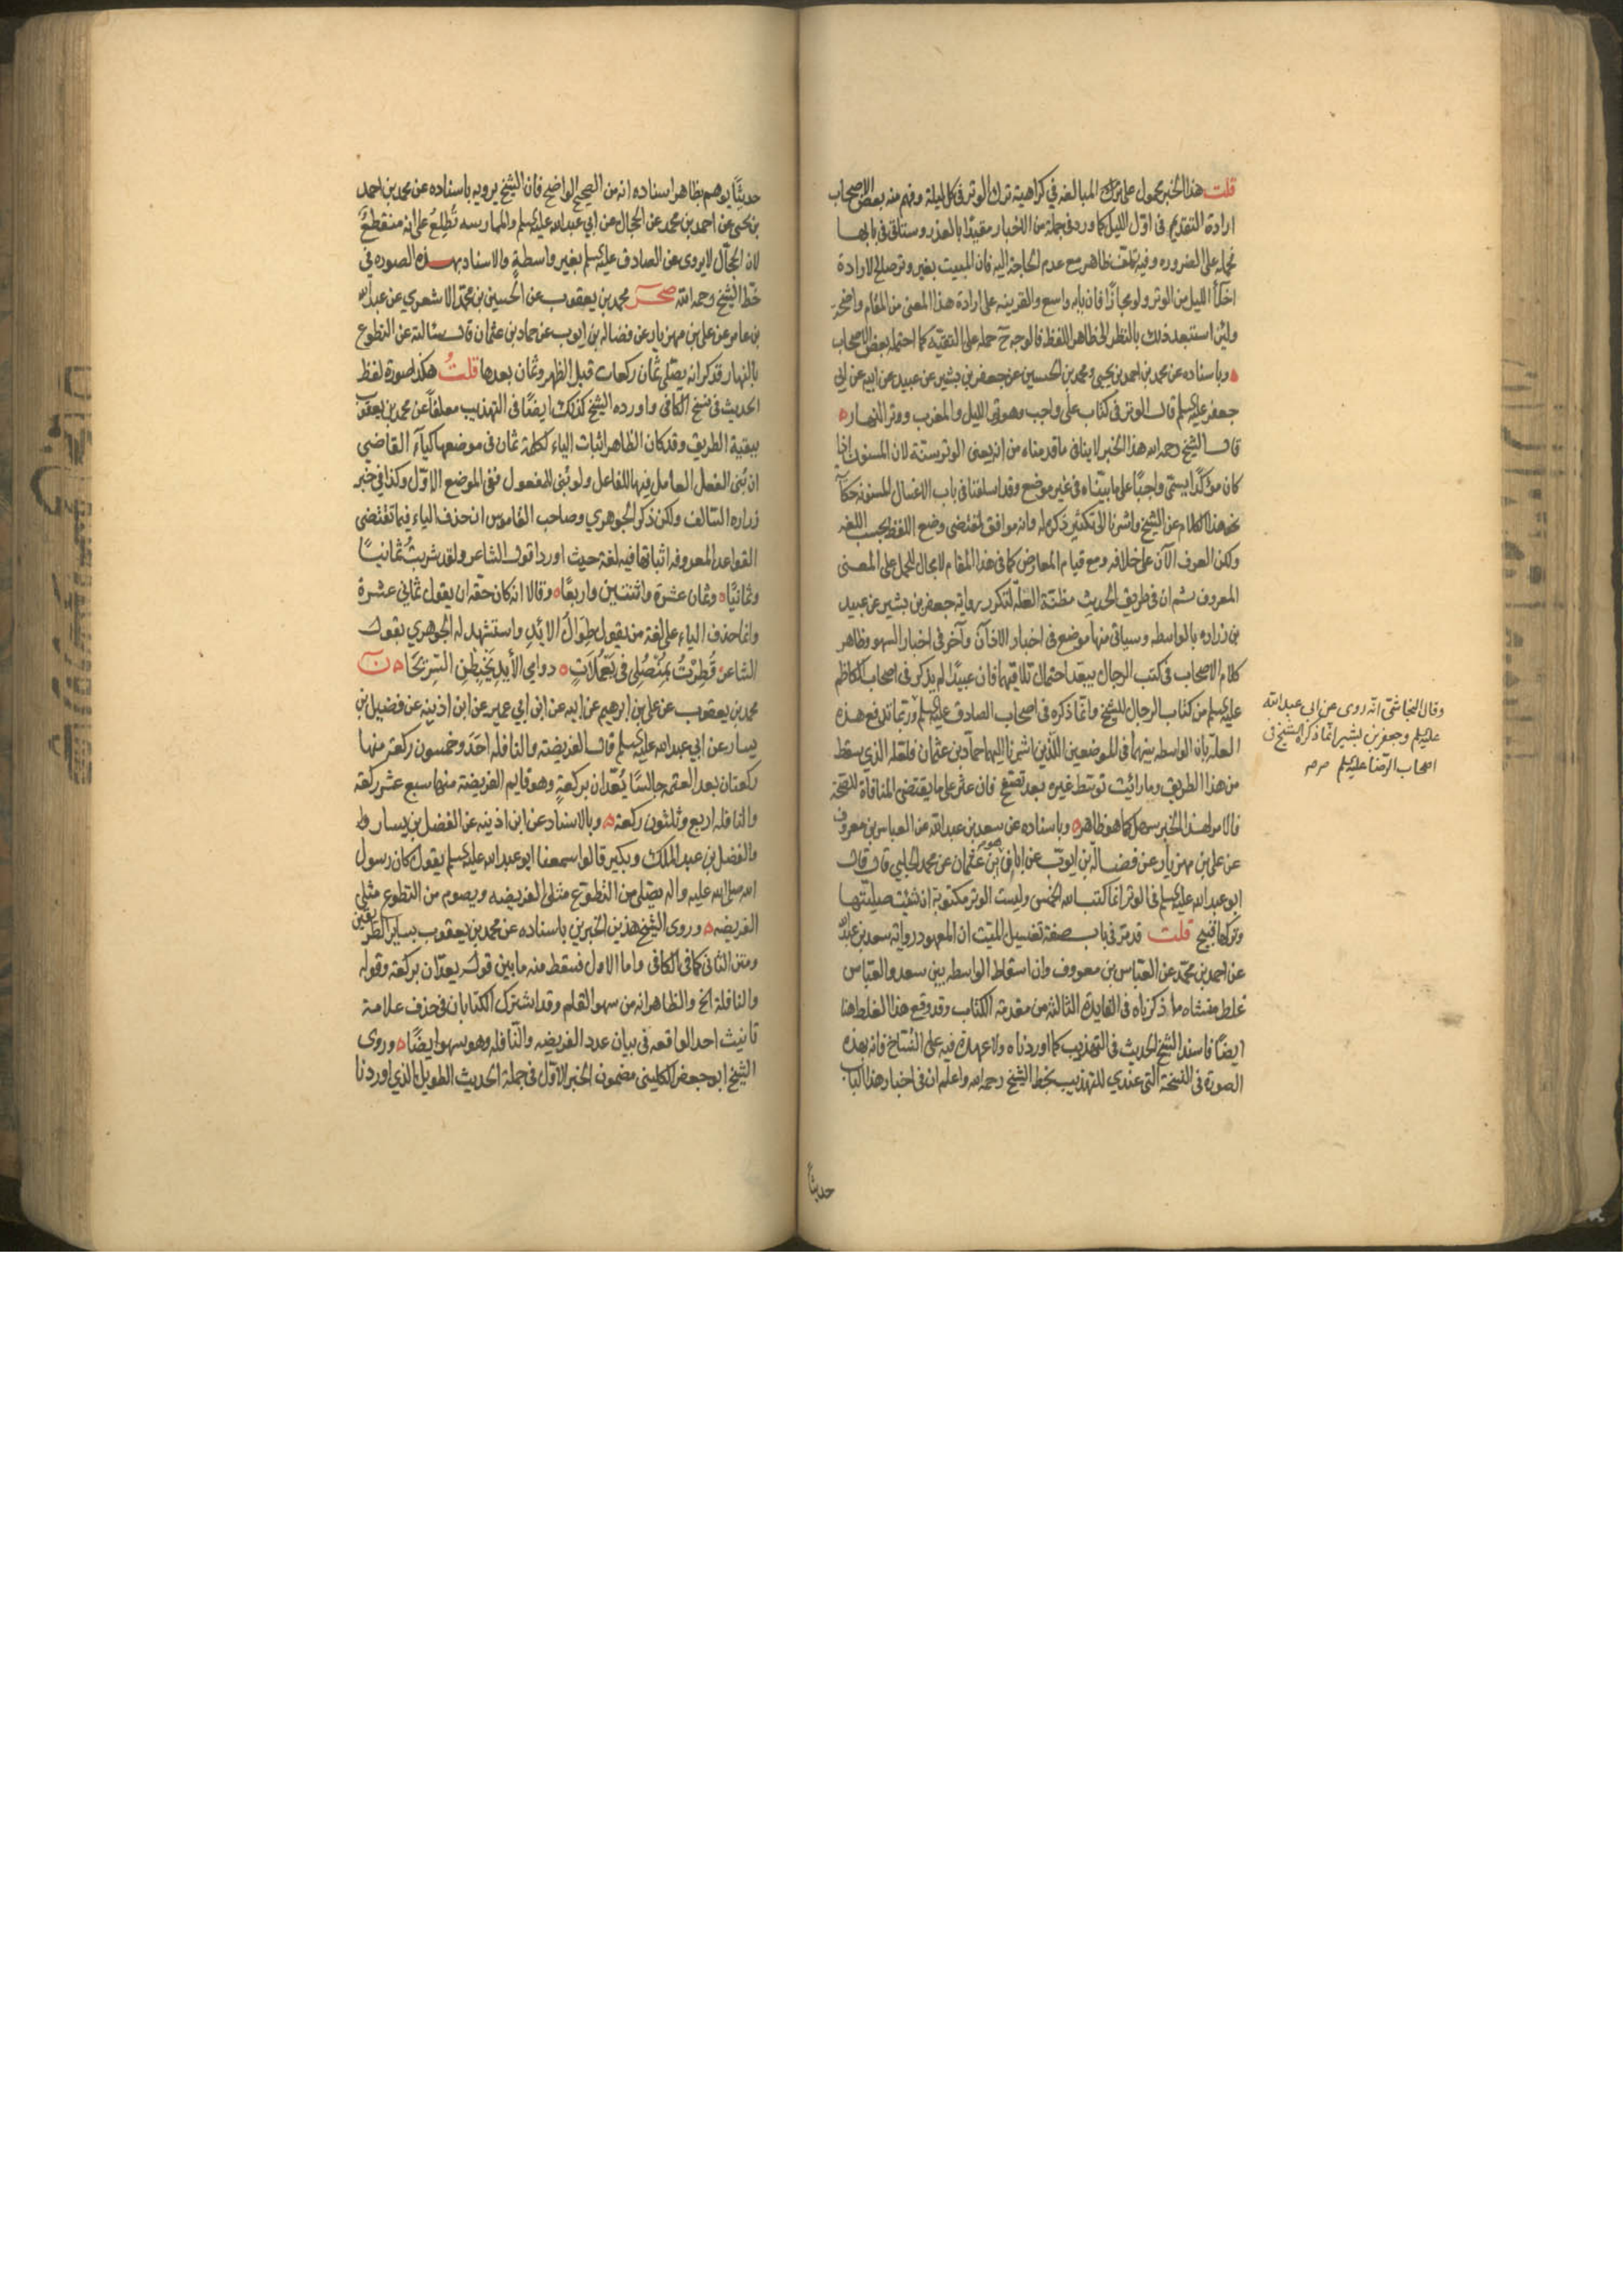 قلت هذا الخبر محمول على المبالغه في كراهية ترك الوتر في كل ليلة وفهم منه بعض الاصحاب
ارادة التقديم في اوّل الليل كما ورد في جملة من الاخبار مقيدًا بالعذر وستاتى في بابها
فحمله على الضروره وفيه تكلف ظاهر مع عدم الحاجة اليه فان المبيت بغير وتر صالح لارادة
اخلاء الليل من الوتر ولو مجازًا فان بابه واسع والقرينه على ارادة هذا المعنى من المقام واضحة
ولئن استبعد ذلك بالنظر الى ظاهر اللفظ فالوجه ح حمله على التقيّة كما احتمله بعض الاصحاب
وباسناده عن محمد بن احمد بن يحيى ومحمد بن الحسين عن جعفر بن بشير عن عبيد عن ابيه عن ابي
جعفر عليه السلم قال الوتر في كتاب علي واجب وهو وتر الليل والمغرب ووتر النهار
قال الشيخ رحمه الله هذا الخبر لا ينافي ما قدمناه من انه يعني الوتر سنّة لان المسنون اذا
كان مؤكدًا يسمّى واجبًا على ما بيّنّاه في غير موضع وقد اسلفنا في باب الاغسال المسنونة حكاية
نحو هذا الكلام عن الشيخ واشرنا الى تكثير ذكره له وانه موافق لمقتضى وضع اللفظ بحسب اللغه
ولكن العرف الآن على خلافه ومع قيام المعارض كما في هذا المقام لا مجال للحمل على المعنى
المعروف ثم ان في طريق الحديث مظنّة العلّه لتكرر رواية جعفر بن بشير عن عبيد
بن زراره بالواسطه وسياتي منها موضع في اخبار الاذان وآخر في اخبار السهو وظاهر
كلام الاصحاب في كتب الرجال يبعّد احتمال تلاقيهما فان عبيدًا لم يذكر في اصحاب الكاظم
عليه السلم من كتاب الرجال للشيخ وانما ذكره في اصحاب الصادق عليه السلم وربما تدفع هذه
العلّة بان الواسطه بينهما في الموضعين اللذين اشرنا اليهما حمّاد بن عثمان فلعله الذي سقط
من هذا الطريق وما رأيت توسّط غيره بعد تصفّح فان عثر على ما يقتضي المنافاة للصّحة
فالامر لهذا الخبر سهل كما هو ظاهر وباسناده عن سعد بن عبد الله عن العباس بن معروف
عن علي بن مهزيار عن فضالة بن ايوب عن ابان بن عثمان عن محمد الحلبي قال قال
ابو عبد الله عليه السلم في الوتر انما كتب الله الخمس وليست الوتر مكتوبة ان شئت صليتها
وتركها قبيح قلت قد مرّ في باب صفة تغسيل الميّت ان المعهود رواية سعد بن عبد الله
عن احمد بن محمّد عن العبّاس بن معروف وان اسقاط الواسطه بين سعد والعبّاس
غلط منشاه ما ذكرناه في الفايدة الثالثة من مقدمة الكتاب وقد وقع هذا الغلط هنا
ايضًا فاسند الشيخ الحديث في التهذيب كما اوردناه ولا عهدة فيه على النسّاخ فانه بهذه
الصورة في النسخة التي عندي للتهذيب بخط الشيخ رحمه الله واعلم ان في اخبار هذا الباب
حديثًا
وقال النجاشي انه روى عن ابي عبد الله
عليه السلم وجعفر بن بشير انما ذكره الشيخ في
اصحاب الرضا عليه السلم
حديثًا يوهم بظاهر اسناده انه من الصحيح الواضح فان الشيخ يرويه باسناده عن محمد بن احمد
بن يحيى عن احمد بن محمد عن الحجّال عن ابي عبد الله عليه السلم والممارسه تُطلعُ على انه منقطعٌ
لان الحجّال لا يروى عن الصادق عليه السلم بغير واسطةٍ والاسناد بهذه الصوره في
خطّ الشيخ رحمه الله صحر محمد بن يعقوب عن الحسين بن محمّد الاشعري عن عبد الله
بن عامر عن علي بن مهزيار عن فضالة بن ايوب عن حماد بن عثمان قال سئالته عن التطوع
بالنهار فذكر انه يصلّى ثمان ركعات قبل الظهر وثمان بعدها قلتُ هكذا صورة لفظ
الحديث في نسخ الكافي واورده الشيخ كذلك ايضًا في التهذيب معلقاً عن محمد بن يعقوب
ببقية الطريق وقد كان الظاهر اثبات الياء لكلمة ثمان في موضعها كياء القاضي
ان بُنى الفعل العامل فيها للفاعل ولو بُنى للمفعول ففي الموضع الاوّل وكذا في خبر
زراره السّالف ولكن ذكر الجوهري وصاحب القاموس ان حذف الياء فيما تقتضى
القواعد المعروفه اثباتها فيه لغة حيث اوردا قول الشاعر ولقد شربتُ ثمانيًا
وثمانيًا وثمان عشرة واثنتين واربعًا وقالا انه كان حقّه ان يقول ثماني عشرة
وانما حذف الياء على لغة من يقول طِوَالُ الايْدِ واستشهد له الجوهري بقول
الشاعر فَطِرْتُ بِمُنْصُلي في يَعْمُلَاتٍ دوامي الأيدِ يَخْبِطْنَ السّرِيحَا ن
محمد بن يعقوب عن علي بن ابرهيم عن ابيه عن ابن ابي عمير عن ابن اذينه عن فضيل بن
يسار عن ابي عبد الله عليه السلم قال الفريضة والنافله احَد وخمسون ركعة منها
ركعتان بعد العتمه جالسًا يُعّدان بركعةٍ وهو قايم الفريضة منها سبع عشر ركعة
والنافله اربع وثلثون ركعة وبالاسناد عن ابن اذينه عن الفضل بن يسار
والفضل بن عبد الملك وبكير قالوا سمعنا ابو عبد الله عليه السلم يقول كان رسول
الله صلى الله عليه واله يصلى من التطوّع مثلى الفريضه ويصوم من التطوع مثلى
الفريضه وروى الشيخ هذين الخبرين باسناده عن محمد بن يعقوب بساير الطريقين
ومتن الثاني كما في الكافي واما الاول فسقط منه ما بين قوله يعدّان بركعة وقوله
والنافلة الخ والظاهر انه من سهو القلم وقد اشترك الكتابان في حذف علامة
تأنيث احد الواقعه في بيان عدد الفريضه والنّافله وهو سهو ايضًا وروى
الشيخ ابو جعفر الكليني مضمون الخبر الاوّل في جملة الحديث الطويل الذي اوردنا